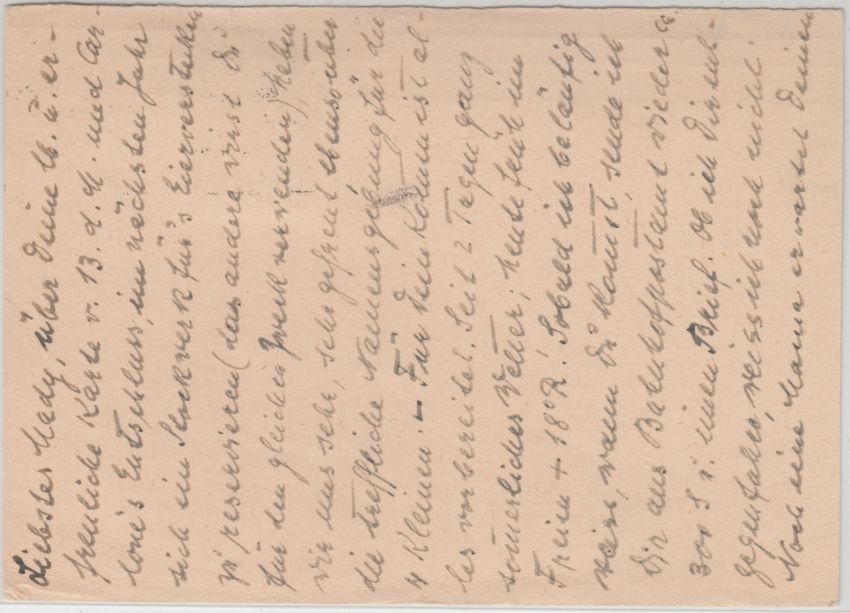 Liebster Mady, über Deine lb. u. er-
freuliche Karte v. 13. d. M. und Car-
lone's Entschluss, im nächsten Jahr
sich ein Stockwerk für's Eierverstecken
zu reservieren (das andere wirst Du
für den gleichen Zweck verwenden) haben
wir uns sehr, sehr gefreut ebenso über
die treffliche Namensgebung für die
4 Kleinen. – Für Dein Kommen ist al-
les vorbereitet. Seit 2 Tagen ganz
sommerliches Wetter; heute früh im
Freien + 18° R! Sobald ich beiläufig
weiss, wann Du kommst, sende ich
Dir ans Bahnhofpostamt wieder ca.
300 S i. einem Brief. Ob ich Dir ent-
gegenfahre, weiss ich noch nicht.
Noch eine Mama erwartet Deinen